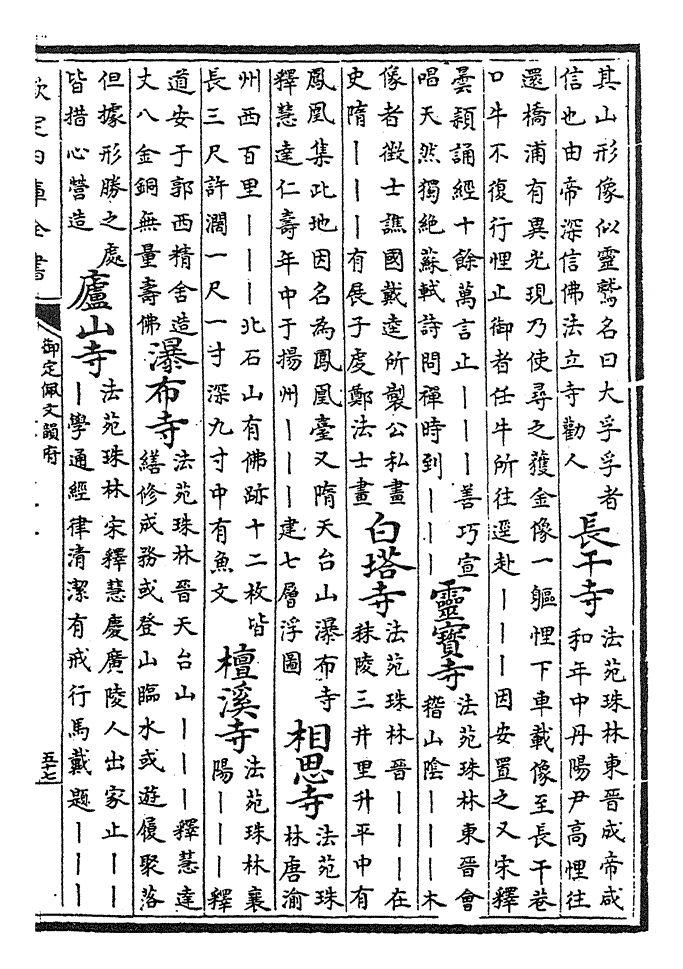 其山形像似靈鷲名曰大孚孚者
信也由帝深信佛法立寺勸人
長干寺
法苑珠林東晉成帝咸
和年中丹陽尹高悝往
還橋浦有異光現乃使尋之獲金像一軀悝下車載像至長干巷
口牛不復行悝止御者任牛所往逕赴｜｜｜因安置之又宋釋
曇穎誦經十餘萬言止｜｜｜善巧宣
唱天然獨絕蘇軾詩問禪時到｜｜｜
靈寶寺
法苑珠林東晉會
稽山陰｜｜｜木
像者徴士譙國戴逵所製公私畫
史隋｜｜｜有展子虔鄭法士畫
白塔寺
法苑珠林晉｜｜｜在
秣陵三井里升平中有
鳳凰集此地因名為鳳凰臺又隋天台山瀑布寺
釋慧達仁壽年中于揚州｜｜｜建七層浮圖
相思寺
法苑珠
林唐渝
州西百里｜｜｜北石山有佛跡十二枚皆
長三尺許濶一尺一寸深九寸中有魚文
檀溪寺
法苑珠林襄
陽｜｜｜釋
道安于郭西精舍造
丈八金銅無量壽佛
瀑布寺
法苑珠林晉天台山｜｜｜釋慧達
繕修成務或登山臨水或遊履聚落
但據形勝之處
皆措心營造
廬山寺
法苑珠林宋釋慧慶廣陵人出家止｜｜
｜學通經律清潔有戒行馬戴題｜｜｜
欽定四庫全書
御定佩文韻府
五十七